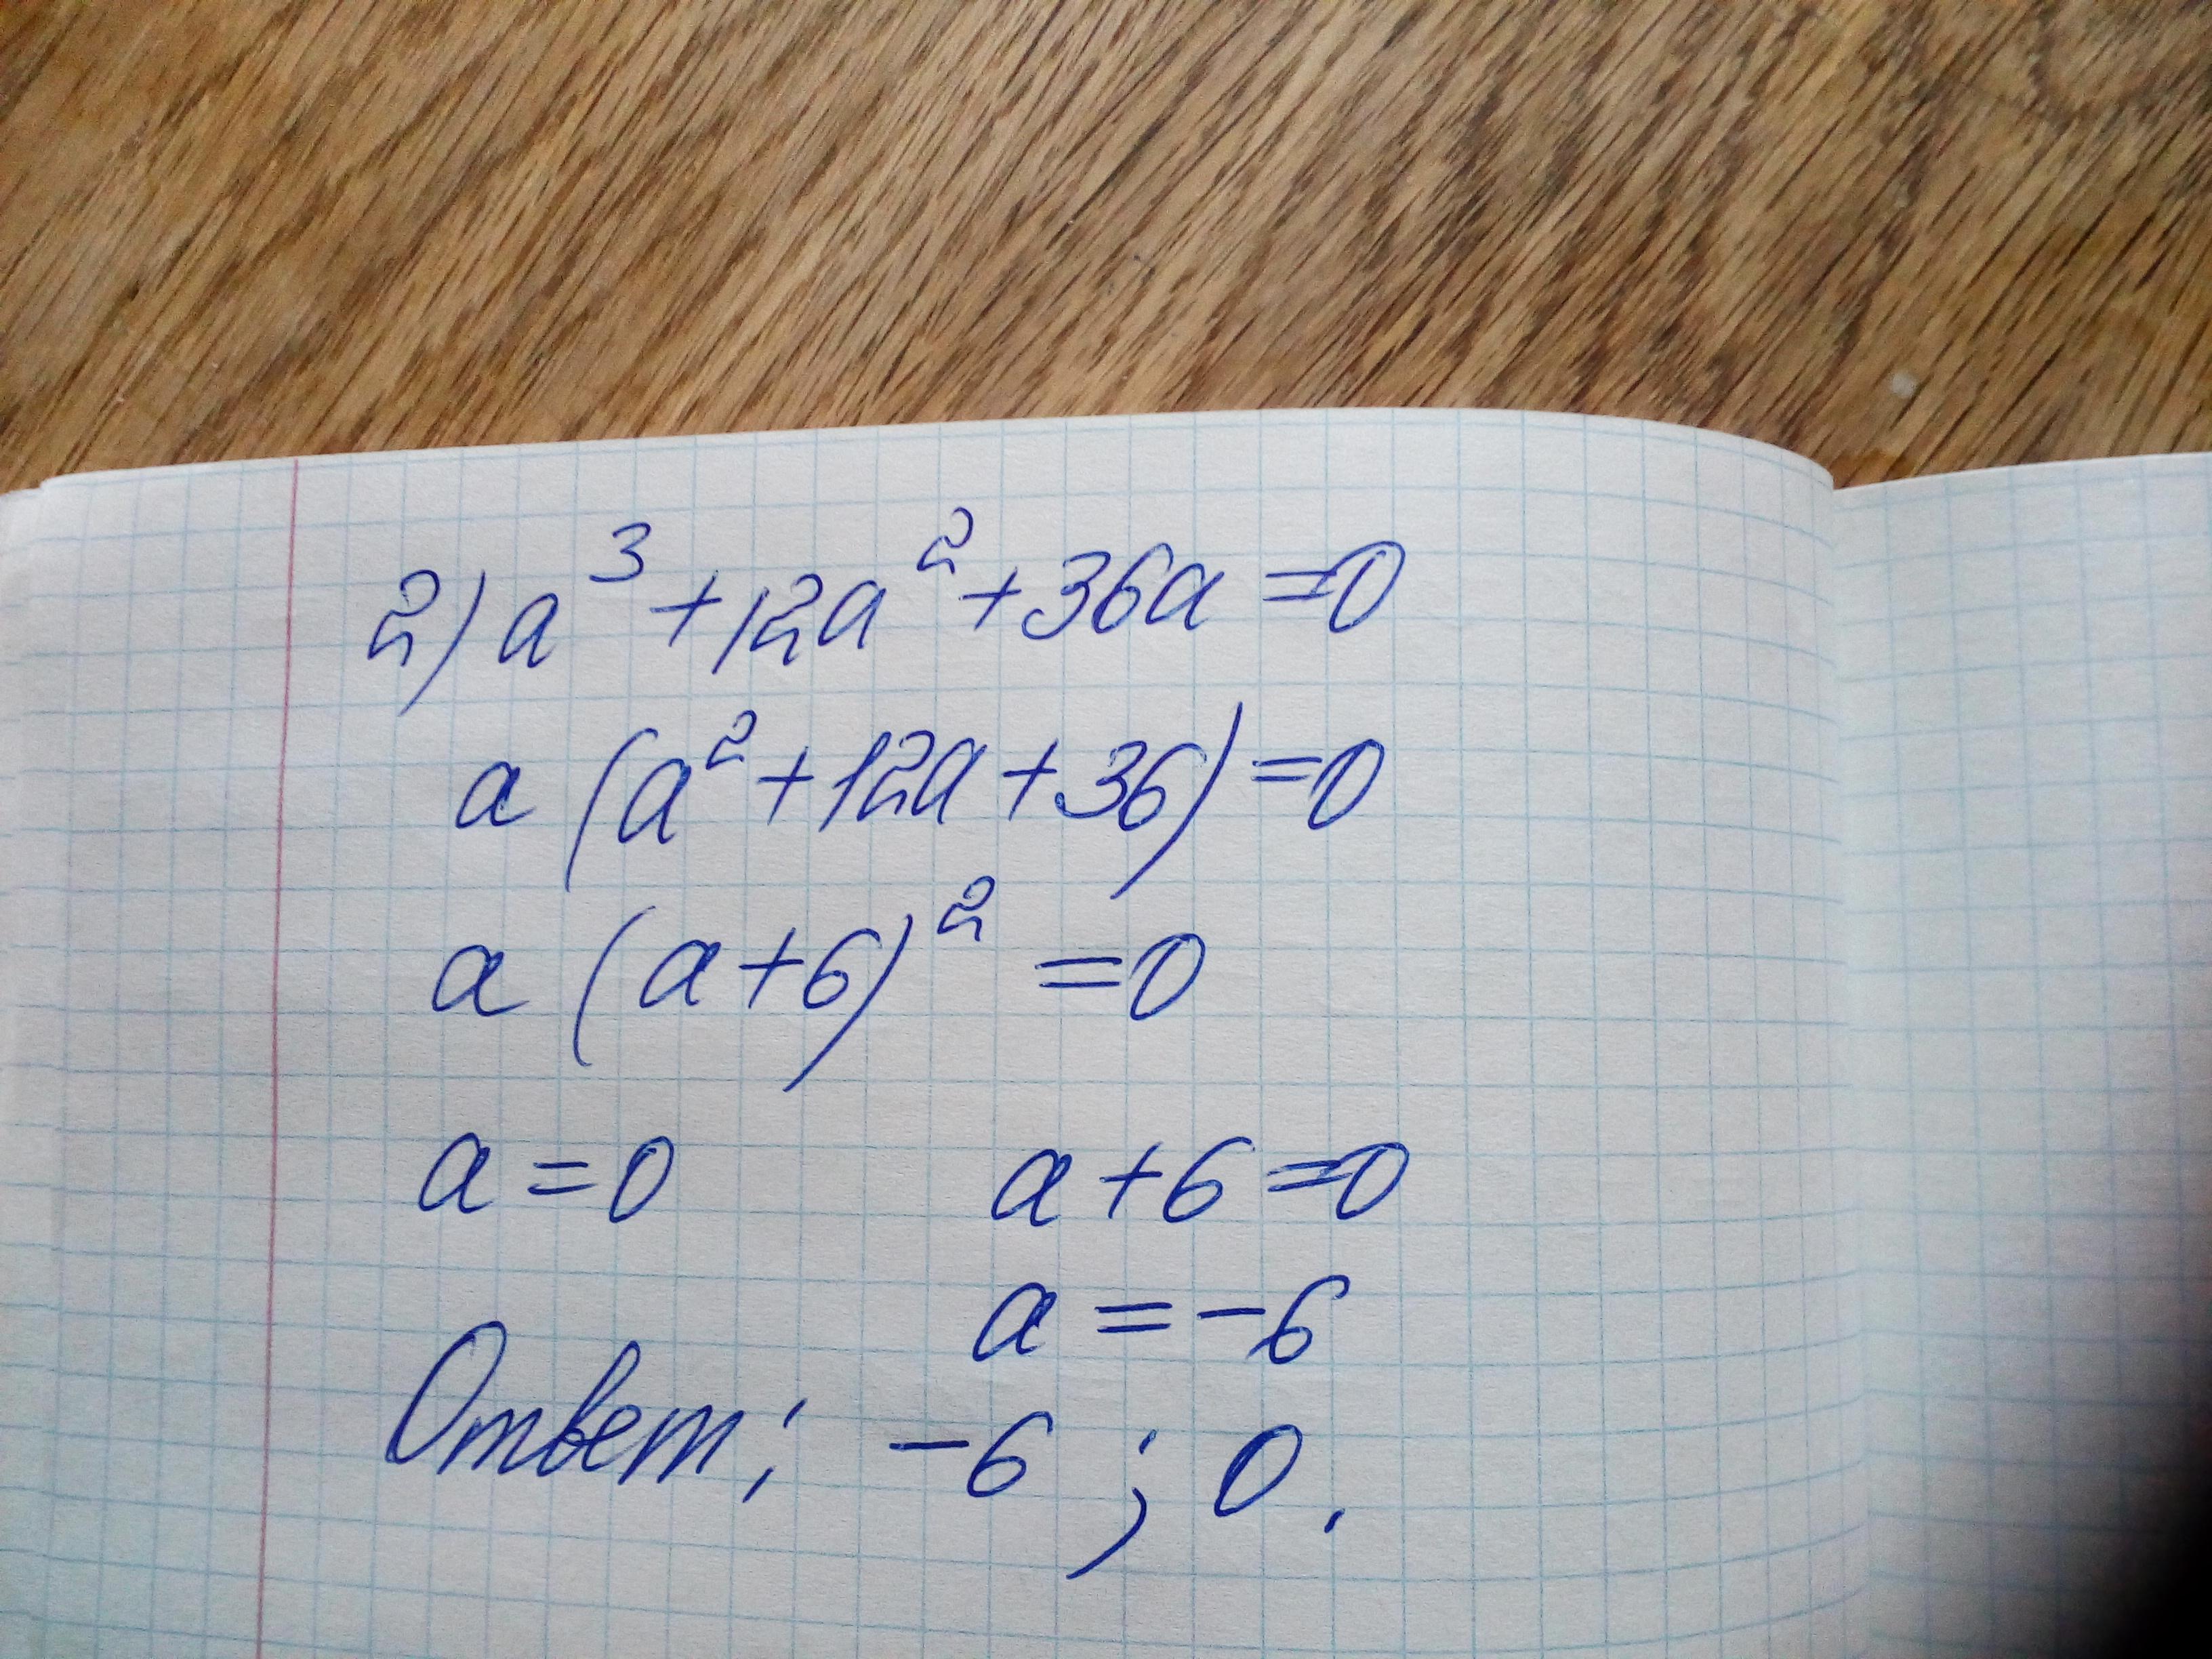 2) a³ + 12a² + 36a = 0
a (a² + 12a + 36) = 0
a (a + 6)² = 0
a = 0 a + 6 = 0
a = -6
Ответ: -6 ; 0.